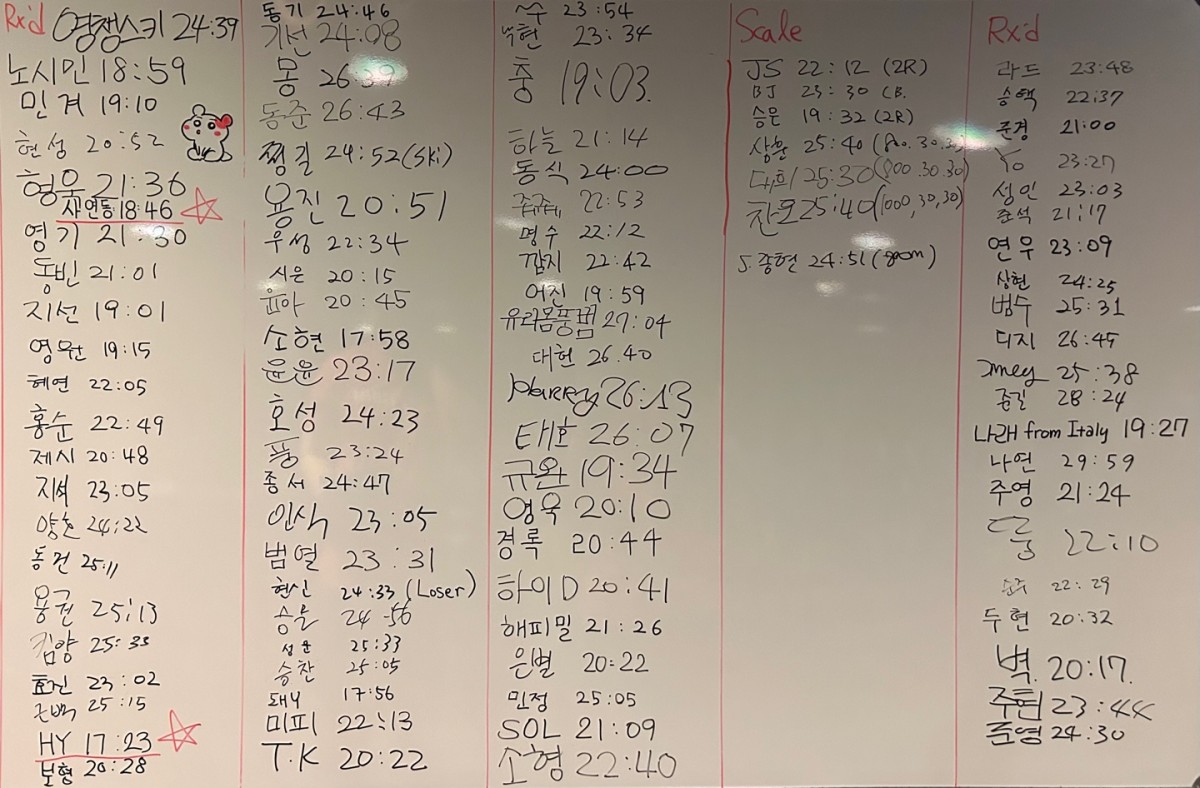 Rx'd
영쟁스키 24:39
노시민 18:59
민겨 19:10
현성 20:52
형욱 21:36
사연동 18:46
영기 21:30
동빈 21:01
지선 19:01
영원 19:15
혜연 22:05
홍순 22:49
제시 20:48
지셔 23:05
양촌 24:22
동건 25:11
용권 25:13
킴양 25:33
효진 23:02
근백 25:15
HY 17:23
보형 20:28
동기 24:46
기선 24:08
몽 26:39
동준 26:43
찡길 24:52 (Ski)
용진 20:51
우성 22:34
시은 20:15
윤아 20:45
소현 17:58
윤윤 23:17
호성 24:23
풍 23:24
종서 24:47
인식 23:05
범열 23:31
현신 24:33 (Loser)
승율 24:56
성운 25:33
승찬 25:05
돼니 17:56
미피 22:13
T.K 20:22
수 23:54
현 23:34
충 19:03.
하늘 21:14
동식 24:00
쥬쥬 22:53
명수 22:12
깜지 22:42
어진 19:59
유리몸풍범 27:04
대헌 26.40
Harry 26:13
태호 26:07
규완 19:34
영욱 20:10
경록 20:44
하이D 20:41
해피밀 21:26
은별 20:22
민정 25:05
SOL 21:09
소형 22:40
Scale
JS 22:12 (2R)
BJ 25:30 (B.
승은 19:32 (2R)
상훈 25:40 (800.30.30)
다희 25:30 (800.30.30)
찬모 25:40 (1000,30,30)
J.종현 24:51 (800m)
Rx'd
라드 23:48
승택 22:37
준경 21:00
Yo 23:27
성인 23:03
준석 21:17
연우 23:09
상현 24:25
범수 25:31
디지 26:45
Jmey 25:38
종길 28:24
나래 from Italy 19:27
나연 29:59
주영 21:24
둘 22:10
순주 22:29
두현 20:32
벽. 20:17.
주현 23:44
준영 24:30